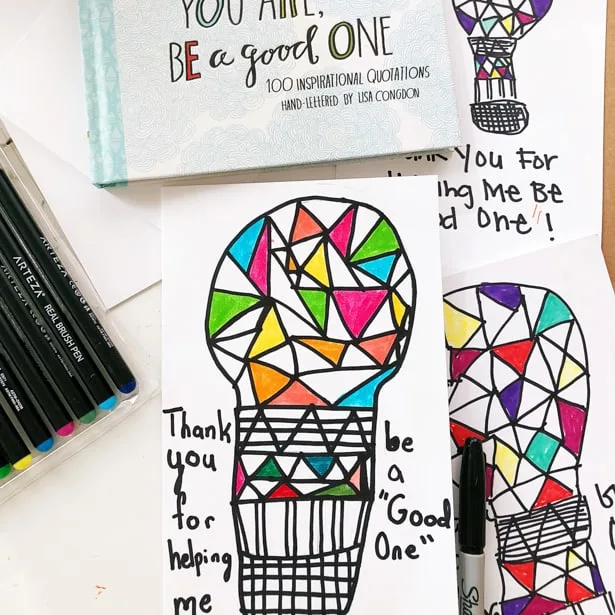 YOU ARE,
BE a good ONE
100 INSPIRATIONAL QUOTATIONS
HAND-LETTERED BY LISA CONGDON
You For
Me Be
One"!
ARTEZA
ARTEZA® REAL BRUSH PEN
Thank
you
for
helping
me
be
a
"Good
One"